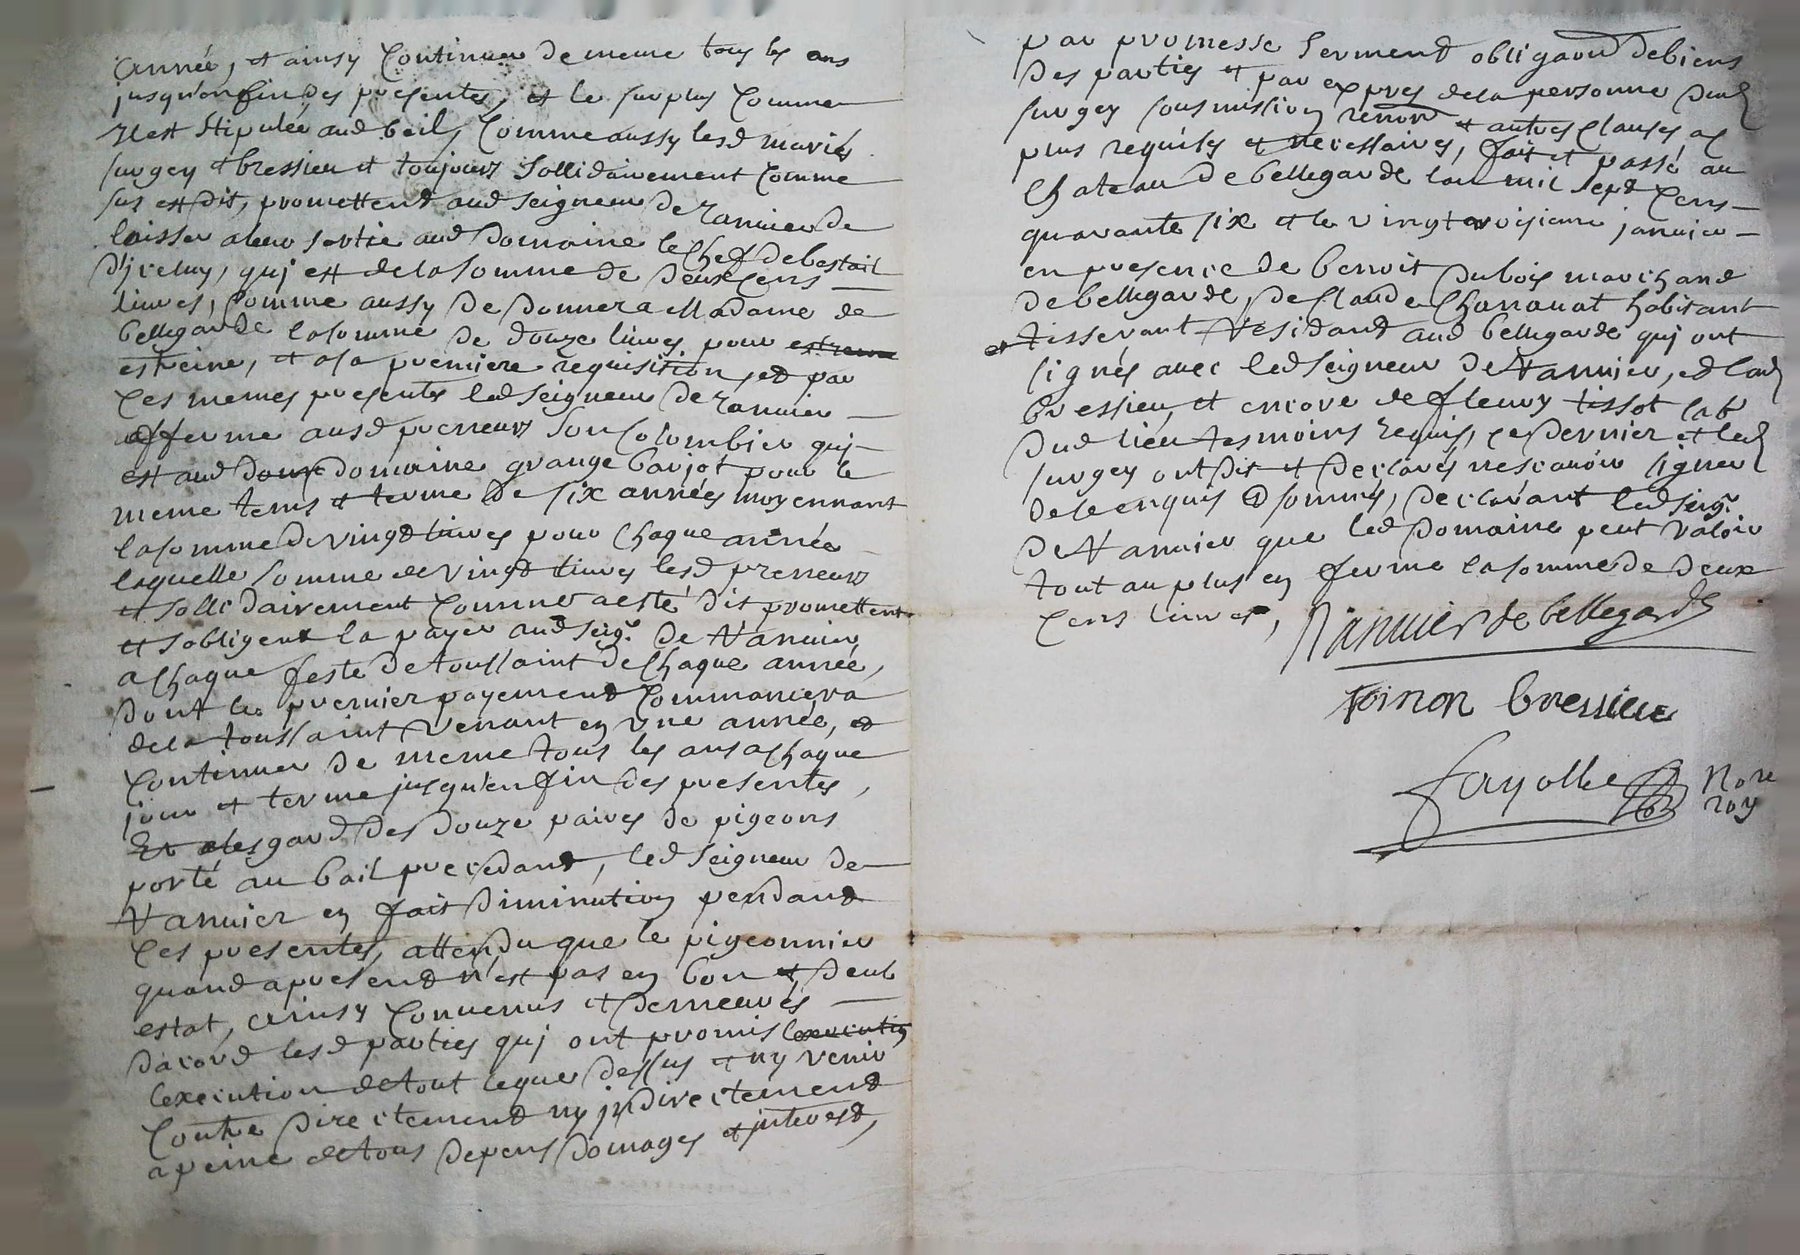 année, et ainsy Continuer de meme tous les ans
jusqu'en fin des presentes, et le surplus Comme
il est stipulée aud bail, Comme aussy lesd mariés
surgey et bressieu et toujours sollidairement Comme
sus est dit, promettent aud seigneur de ranvier de
laisser a leur sortie aud Domaine le Chef de bestail
D'iceluy, qui est de la somme de deux Cens
livres, Comme aussy de donner a Madame de
bellegarde la somme de douze livres pour
estreine, et a sa premiere requisition, et par
Ces memes presentes led seigneur de ranvier
afferme ausd preneurs son Colombier qui
est aud Domaine grange barjot pour le
meme tems et terme de six années moyennant
la somme de vingt livres pour Chaque année
laquelle somme de vingt livres lesd preneurs
et sollidairement Comme a esté dit promettent
et s'obligent la payer aud seigr de Ranvier
a Chaque feste de toussaint de Chaque année,
dont le premier payement Commancera
de la toussaint venant en une année, et
Continuer de meme tous les ans a Chaque
jour et terme jusqu'en fin des presentes,
Et a lesgard des douze paires de pigeons
porté au bail precedant, led seigneur de
Ranvier en fait diminution pendant
Ces presentes, attendu que le pigeonnier
quand a present n'est pas en bon et deub
estat, ainsy Convenus et demeurés
d'acord lesd parties qui ont promis lexecution
lexecution de tout le que dessus et ny venir
Contre directement ny jndirectement
a peine de tous depens domages et jnterest,
par promesse serment obligaon de biens
des parties et par expres de la personne dud
surgey sousmission renon et autres Clauses, a
plus requises et necessaires, fait et passé au
Chateau de bellegarde l'an mil sept Cens
quarante six et le vingt troisieme janvier
en presence de benoit Dubois marchand
de bellegarde, de Claude Charanat habitant
et tisserant residant aud bellegarde qui ont
signés avec led seigneur de Ranvier, et lad
bressieu, et encore de fleury tissot labr
dud lieu tesmoins requis, ce dernier et led
surgey ont dit et declarés ne scavoir signer
de ce enquis et sommés, declarant led seigr
de Ranvier que led domaine peut valoir
tout au plus en ferme la somme de deux
Cens livres, Ranvier de bellegarde
toinon bressieu
fayolle Nore
roy